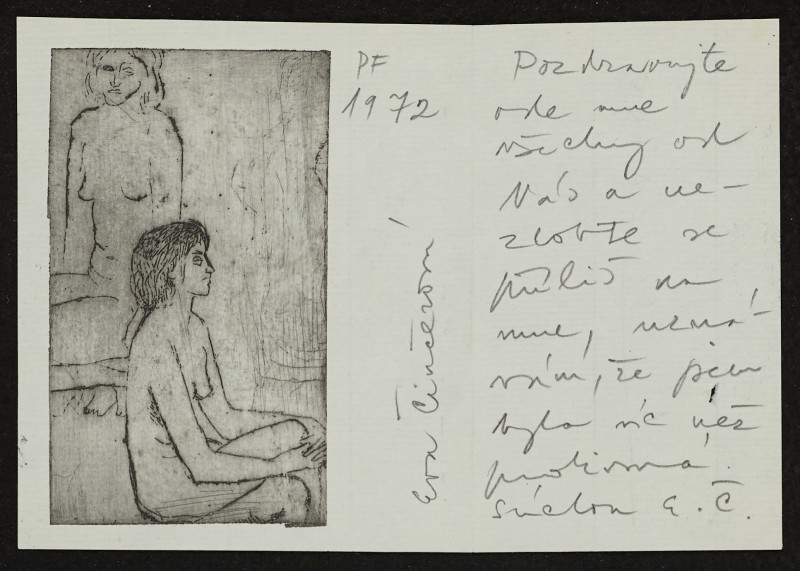 PF
1972
Eva Činčerová
Pozdravujte
ode mne
všechny od
Vás a ne-
zlobte se
příliš na
mne, uzná-
vám, že jsem
byla víc než
protivná.
E. Č.